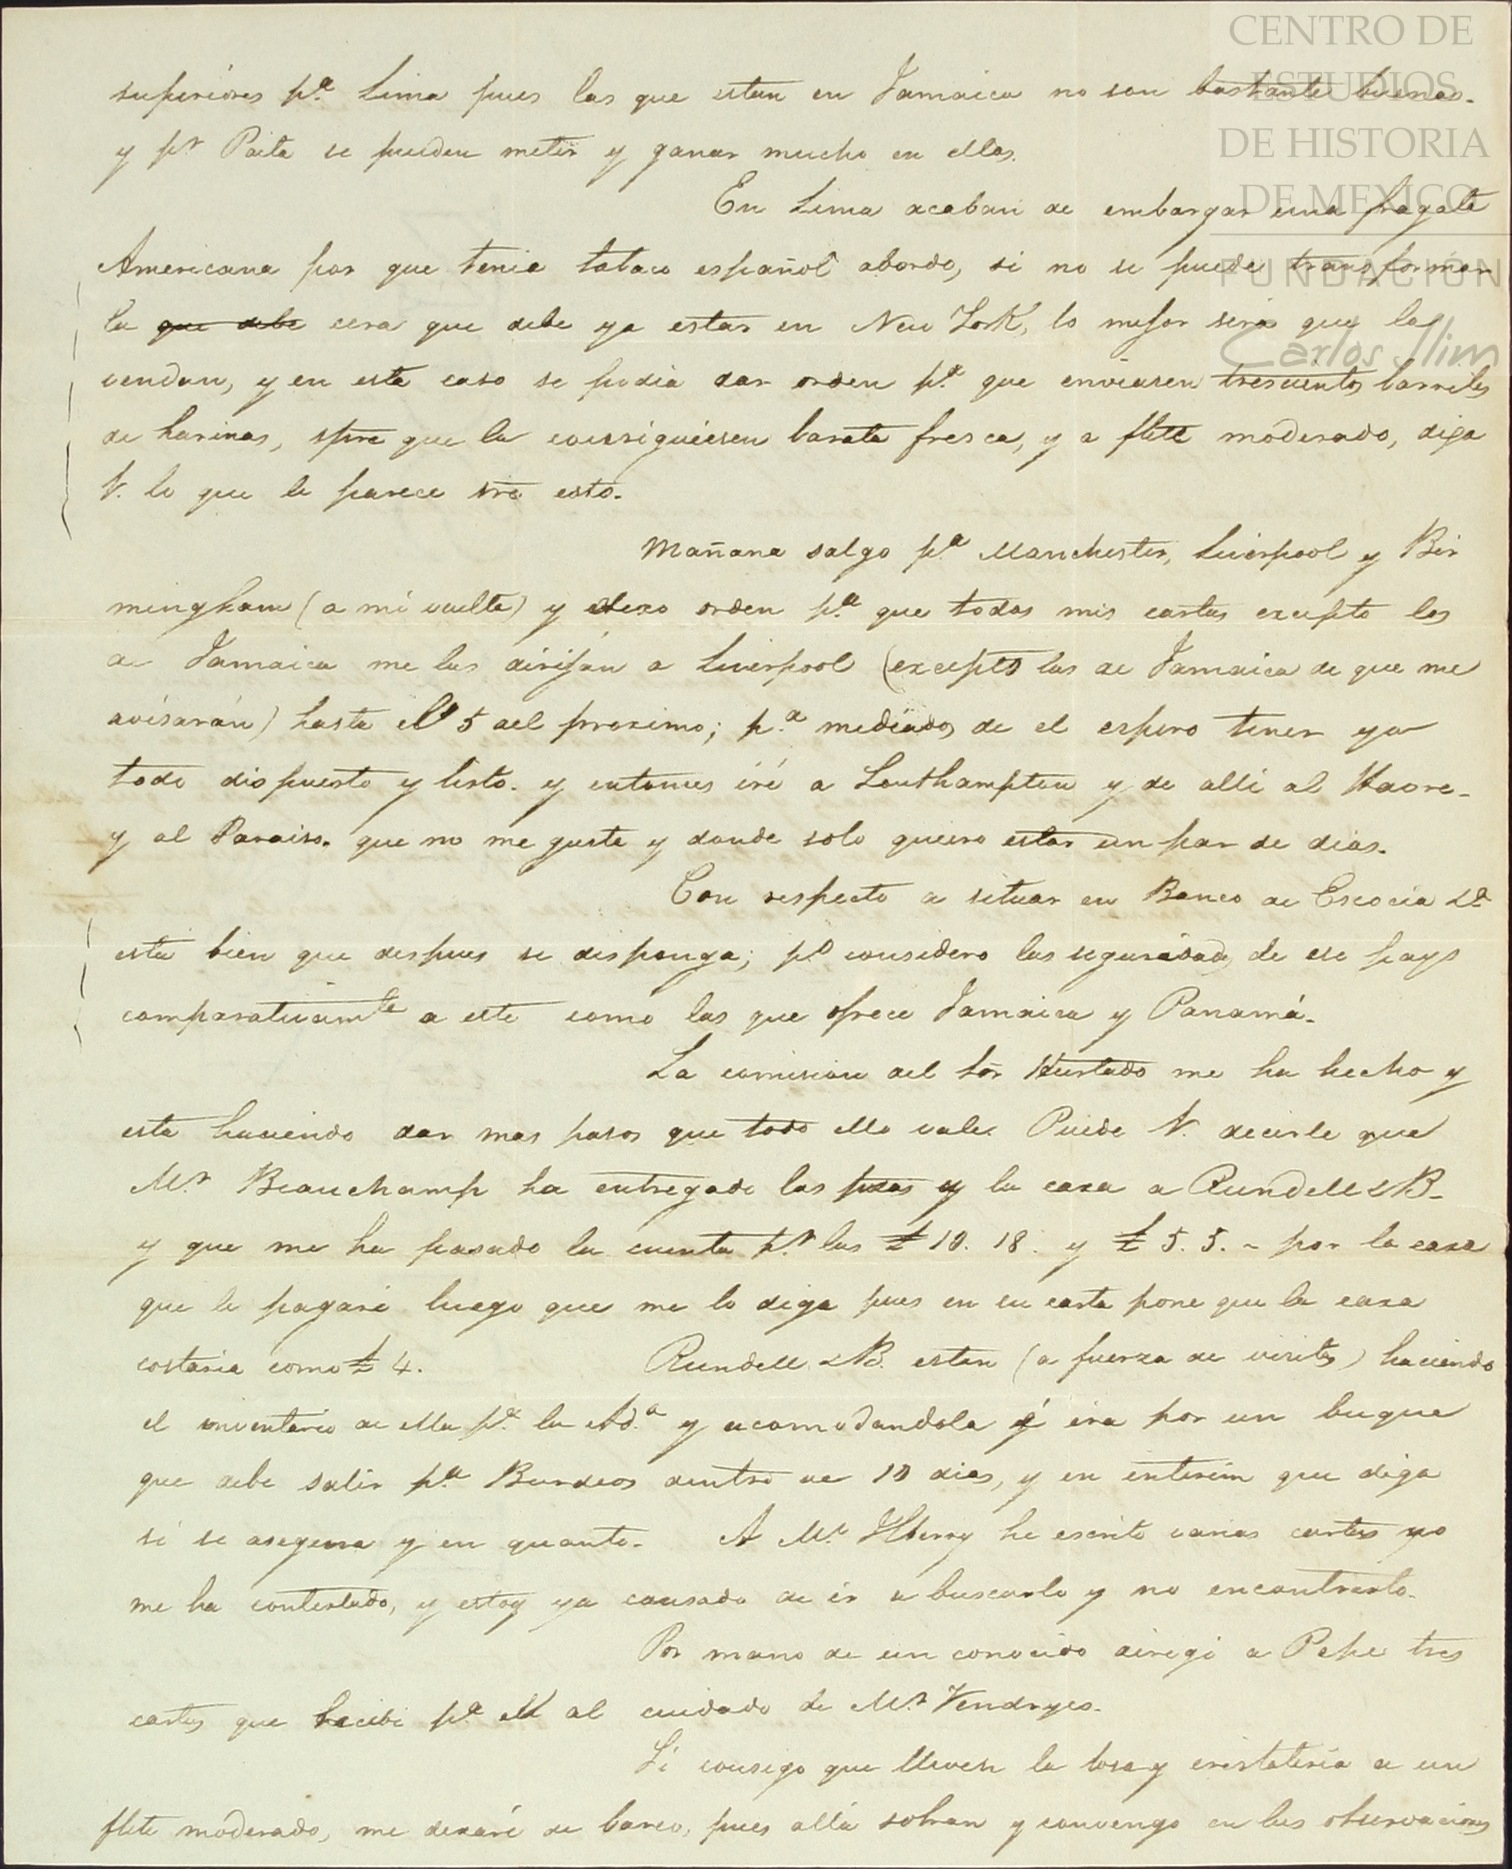 CENTRO DE
ESTUDIOS
DE HISTORIA
DE MEXICO
FUNDACIÓN
Carlos Slim
superiores pª Lima pues las que estan en Jamaica no son bastante buenas.
y pr Paita se pueden meter y ganar mucho en ellas.
En Lima acaban de embargar una fragata
Americana por que tenia tabaco español abordo, si no se puede transformar
la que debe cera que debe ya estar en New York, lo mejor será que la
vendan, y en este caso se podia dar orden pª que enviasen trescientos barriles
de harinas, spre que la consiguiesen barata fresca, y a flete moderado, diga
V. lo que le parece sre esto.
Mañana salgo pª Manchester, Liverpool y Bir
mingham (a mi vuelta) y dexo orden pª que todas mis cartas excepto las
de Jamaica me las dirijan a Liverpool (excepto las de Jamaica de que me
avisarán) hasta el 5 del proximo; pª mediados de el espero tener ya
todo dispuesto y listo. y entonces iré a Southampton y de alli al Havre.
y al Paraiso. que no me gusta y donde solo quiero estar un par de dias.
Con respecto a situar en Banco de Escocia
está bien que despues se disponga; po considero las seguridades de ese pays
comparativamte a este como las que ofrece Jamaica y Panamá.
La comision del Sor Hurtado me ha hecho y
esta haciendo dar mas pasos que todo ello vale. Puede V. decirle que
Mr Beauchamp ha entregado las pzas y la caxa a Rundell & B.
y que me ha pasado la cuenta pr las £ 10. 18. y £ 5. 5. - por la caxa
que le pagaré luego que me lo diga pues en su carta pone que la caxa
costaria como £ 4. Rundell & B. estan (a fuerza de visitas) haciendo
el inventario de ella pª la Adª y acomodandola q̃ ira por un buque
que debe salir pª Burdeos dentro de 10 dias, y en interim que diga
si se asegura y en quanto. A Mr. he escrito varias cartas no
me ha contestado, y estoy ya cansado de ir a buscarlo y no encontrarlo.
Por mano de un conocido dirigi a Pepe tres
cartas que recibi pª el al cuidado de Mr Vendryes.
Si consigo que lleven la losa y cristaleria a un
flete moderado, me dexaré de barco, pues allá sobran y convengo en las observaciones